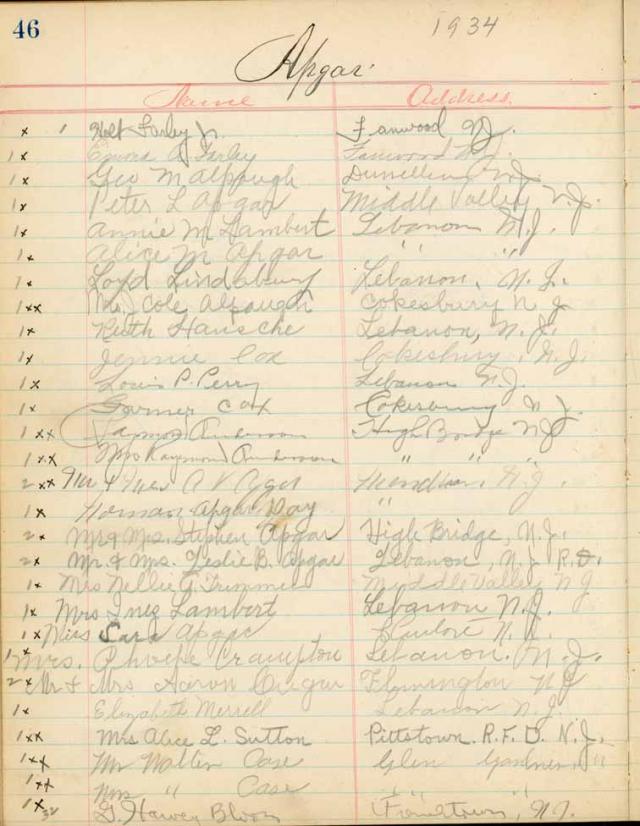 46
1934
Apgar
Name Address
x 1 Holt Farley Jr. Fanwood N.J.
1x Farley Fanwood N.J.
1x Geo M Alpaugh Dunellen N.J.
1x Peter L Apgar Middle Valley N.J.
1x Annie M Lambert Lebanon N.J.
1x Alice M Apgar " "
1x Loyd Lindabury Lebanon, N.J.
1xx Mrs. Cole Alpaugh Cokesbury N J
1x Ruth Hausche Lebanon, N.J.
1x Jennie Cox Cokesbury, N.J.
1x Louis P. Perry Lebanon N.J.
1x Garner Cox Cokesbury N J.
1xx Raymond Anderson High Bridge NJ
1xx Mrs Raymond Anderson " "
2xx Mr & Mrs A V Mendham, N.J.
1x Herman Apgar Day "
2x Mr & Mrs. Stephen Apgar High Bridge, N.J.
2x Mr. & Mrs. Leslie B. Apgar Lebanon, N.J. R.D.
1x Mrs Nellie G. Trimmer Middle Valley N J
1x Mrs Inez Lambert Lebanon N.J.
1x Miss Sara Apgar N.J.
1x Mrs. Phoebe Crampton Lebanon. N.J.
2x Mr & Mrs Aaron Apgar Flemington N J
1x Elizabeth Merrell Lebanon N.J.
1xx Mrs Alice L. Sutton Pittstown. R.F.D. N.J.
1xx Mr Case Glen Gardner, "
1xx Mrs " Case " "
1x 32 G. Harvey Bloom N.J.